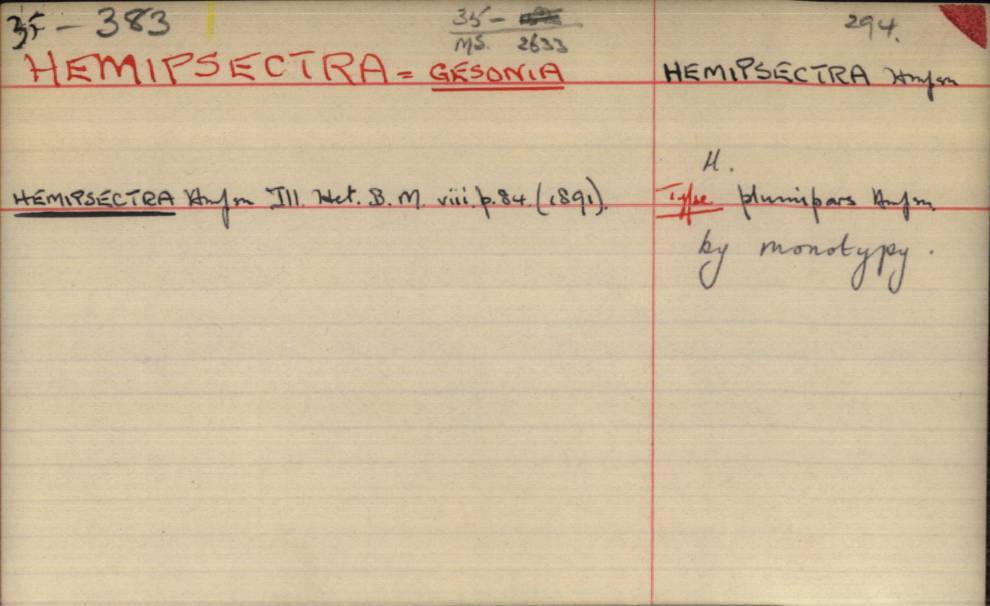 35 - 383
35 -
MS. 2633
294.
HEMIPSECTRA = GESONIA
HEMIPSECTRA Hmpsn
HEMIPSECTRA Hmpsn Ill. Het. B. M. viii. p. 84. (1891).
H.
Type plumipars Hmpsn.
by monotypy.